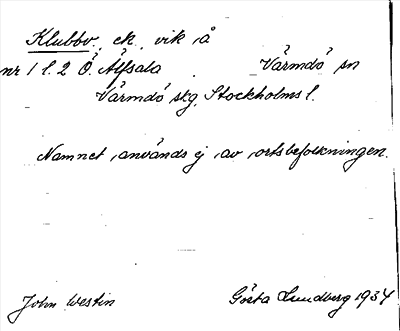 Klubbv. ek. vik å
nr 1 l. 2 Ö. Älfsala Värmdö sn
Värmdö skg. Stockholms l.
Namnet används ej av ortsbefolkningen.
John Westin Gösta Lundberg 1934